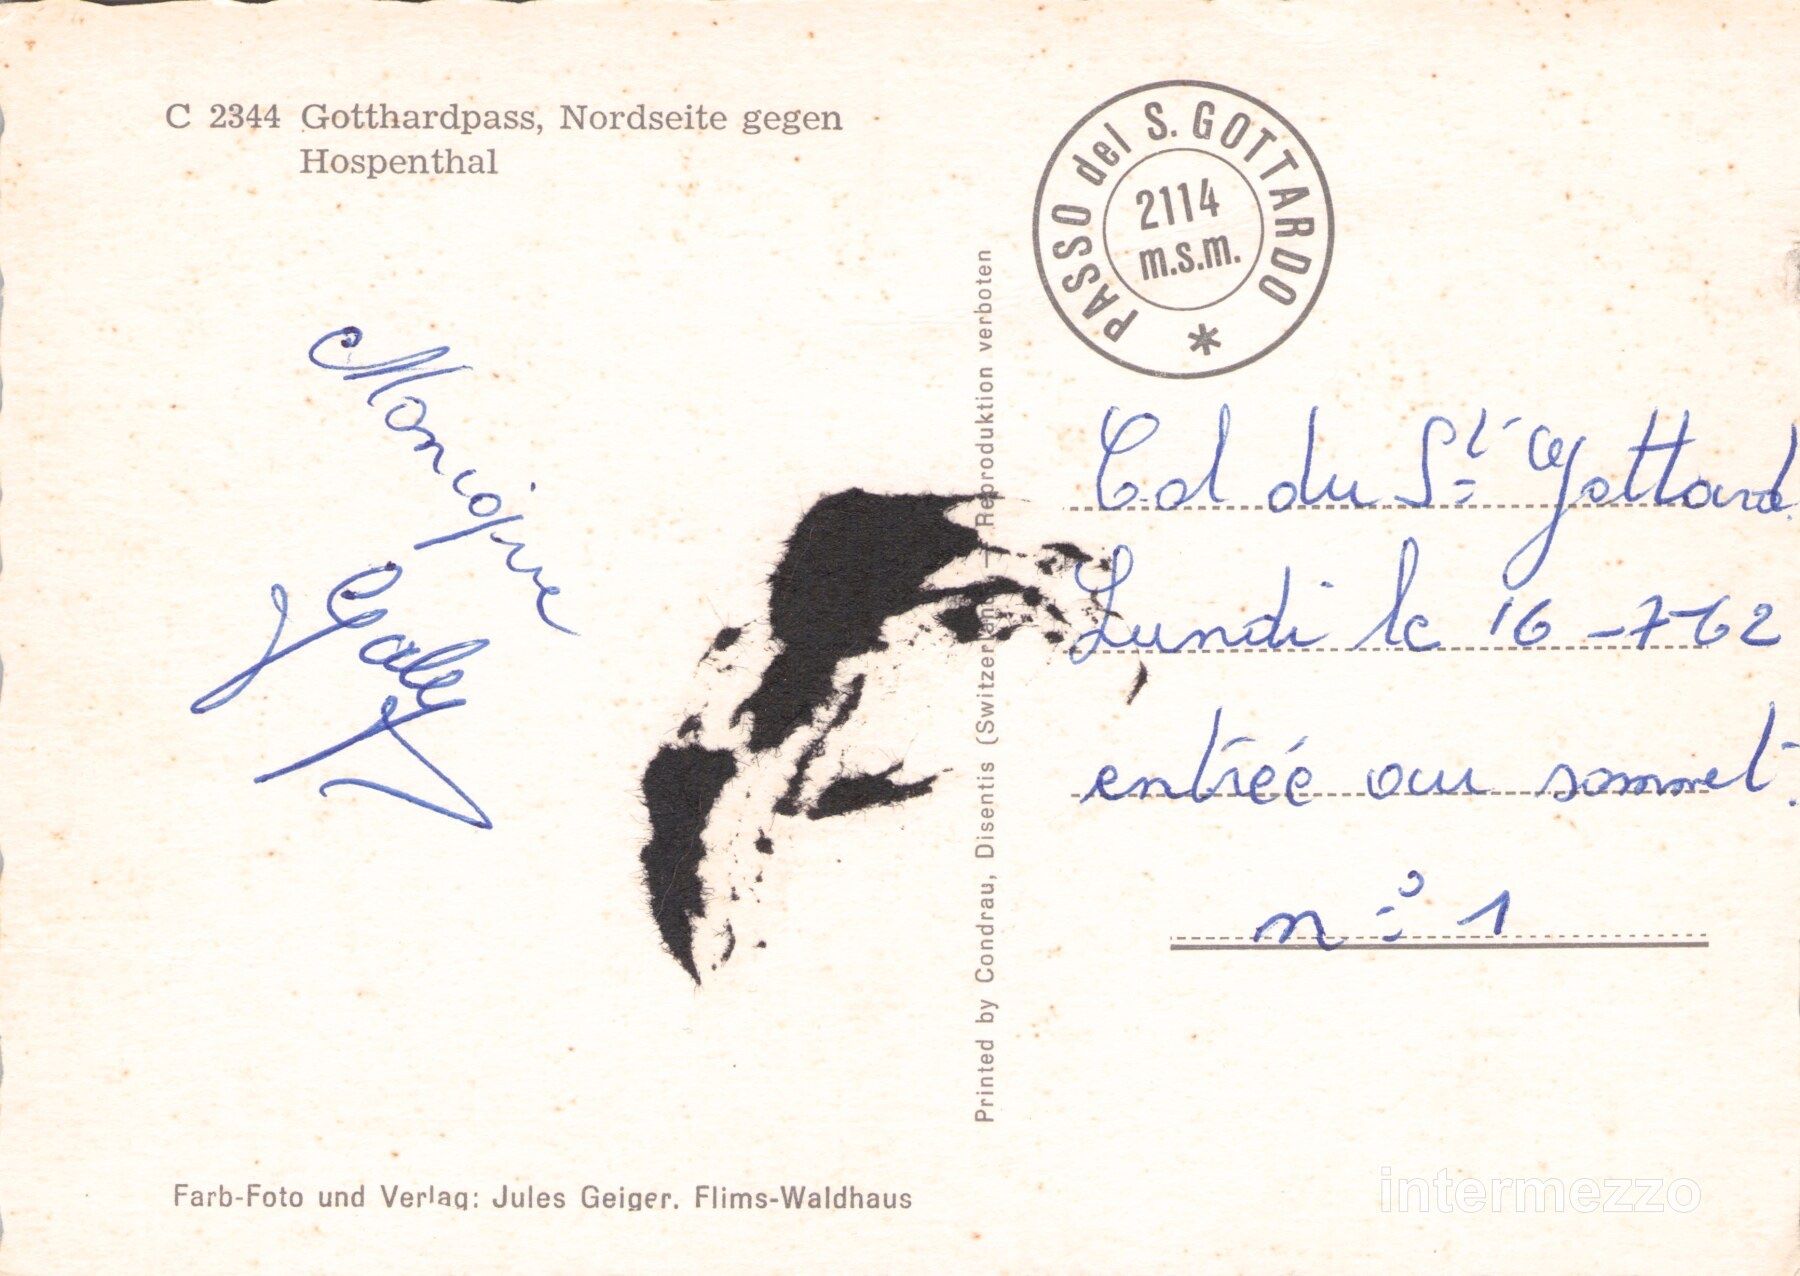 C 2344 Gotthardpass, Nordseite gegen
Hospenthal
PASSO del S. GOTTARDO
2114
m.s.m.
*
Monique
Printed by Condrau, Disentis (Switzerland) — Reproduktion verboten
Col du St Gottard
Lundi le 16-7-62
entrée au sommet.
n° 1
Farb-Foto und Verlag: Jules Geiger. Flims-Waldhaus
intermezzo